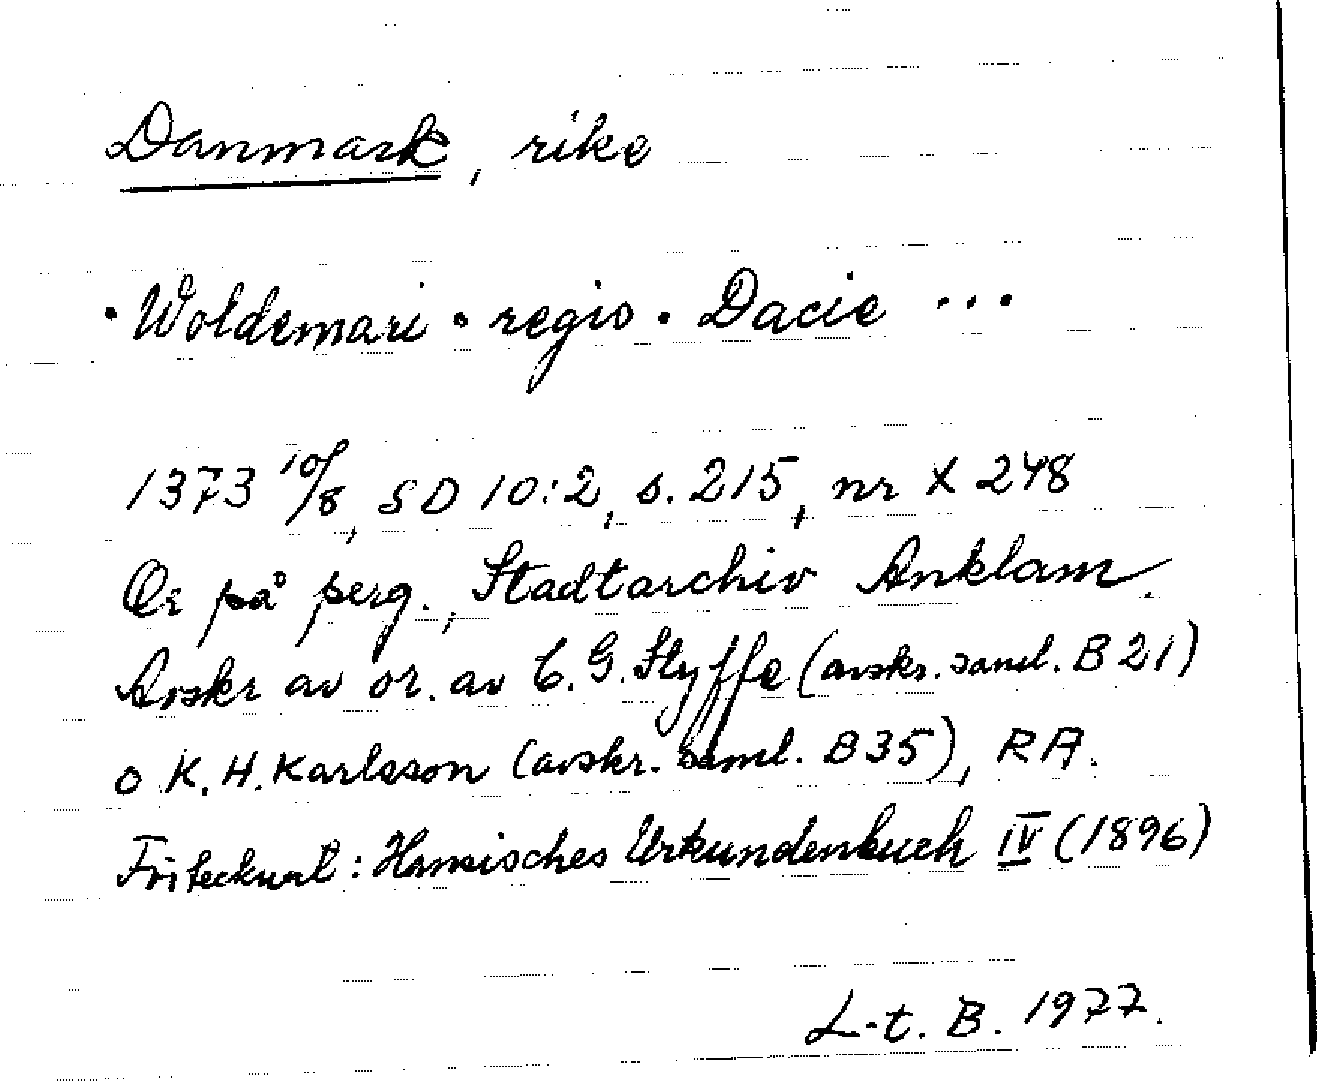 Danmark, rike
· Woldemari · regis · Dacie ...
1373 10/8, SD 10:2, s. 215, nr X 248
Or på perg., Stadtarchiv Anklam.
Avskr av or. av C. G. Styffe (avskr. saml. B 21)
o K. H. Karlsson (avskr. saml. B 35), RA.
Förtecknat: Hansisches Urkundenbuch IV (1896)
L-t. B. 1977.